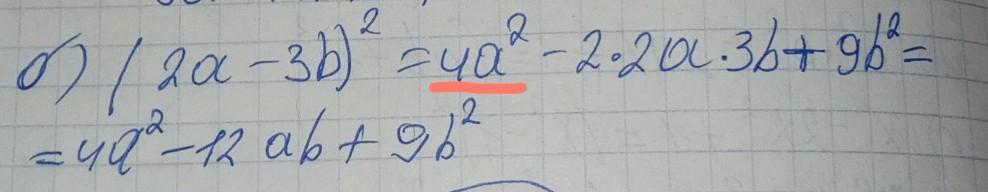 б) (2a - 3b)² = 4a² - 2·2a·3b + 9b² =
= 4a² - 12ab + 9b²